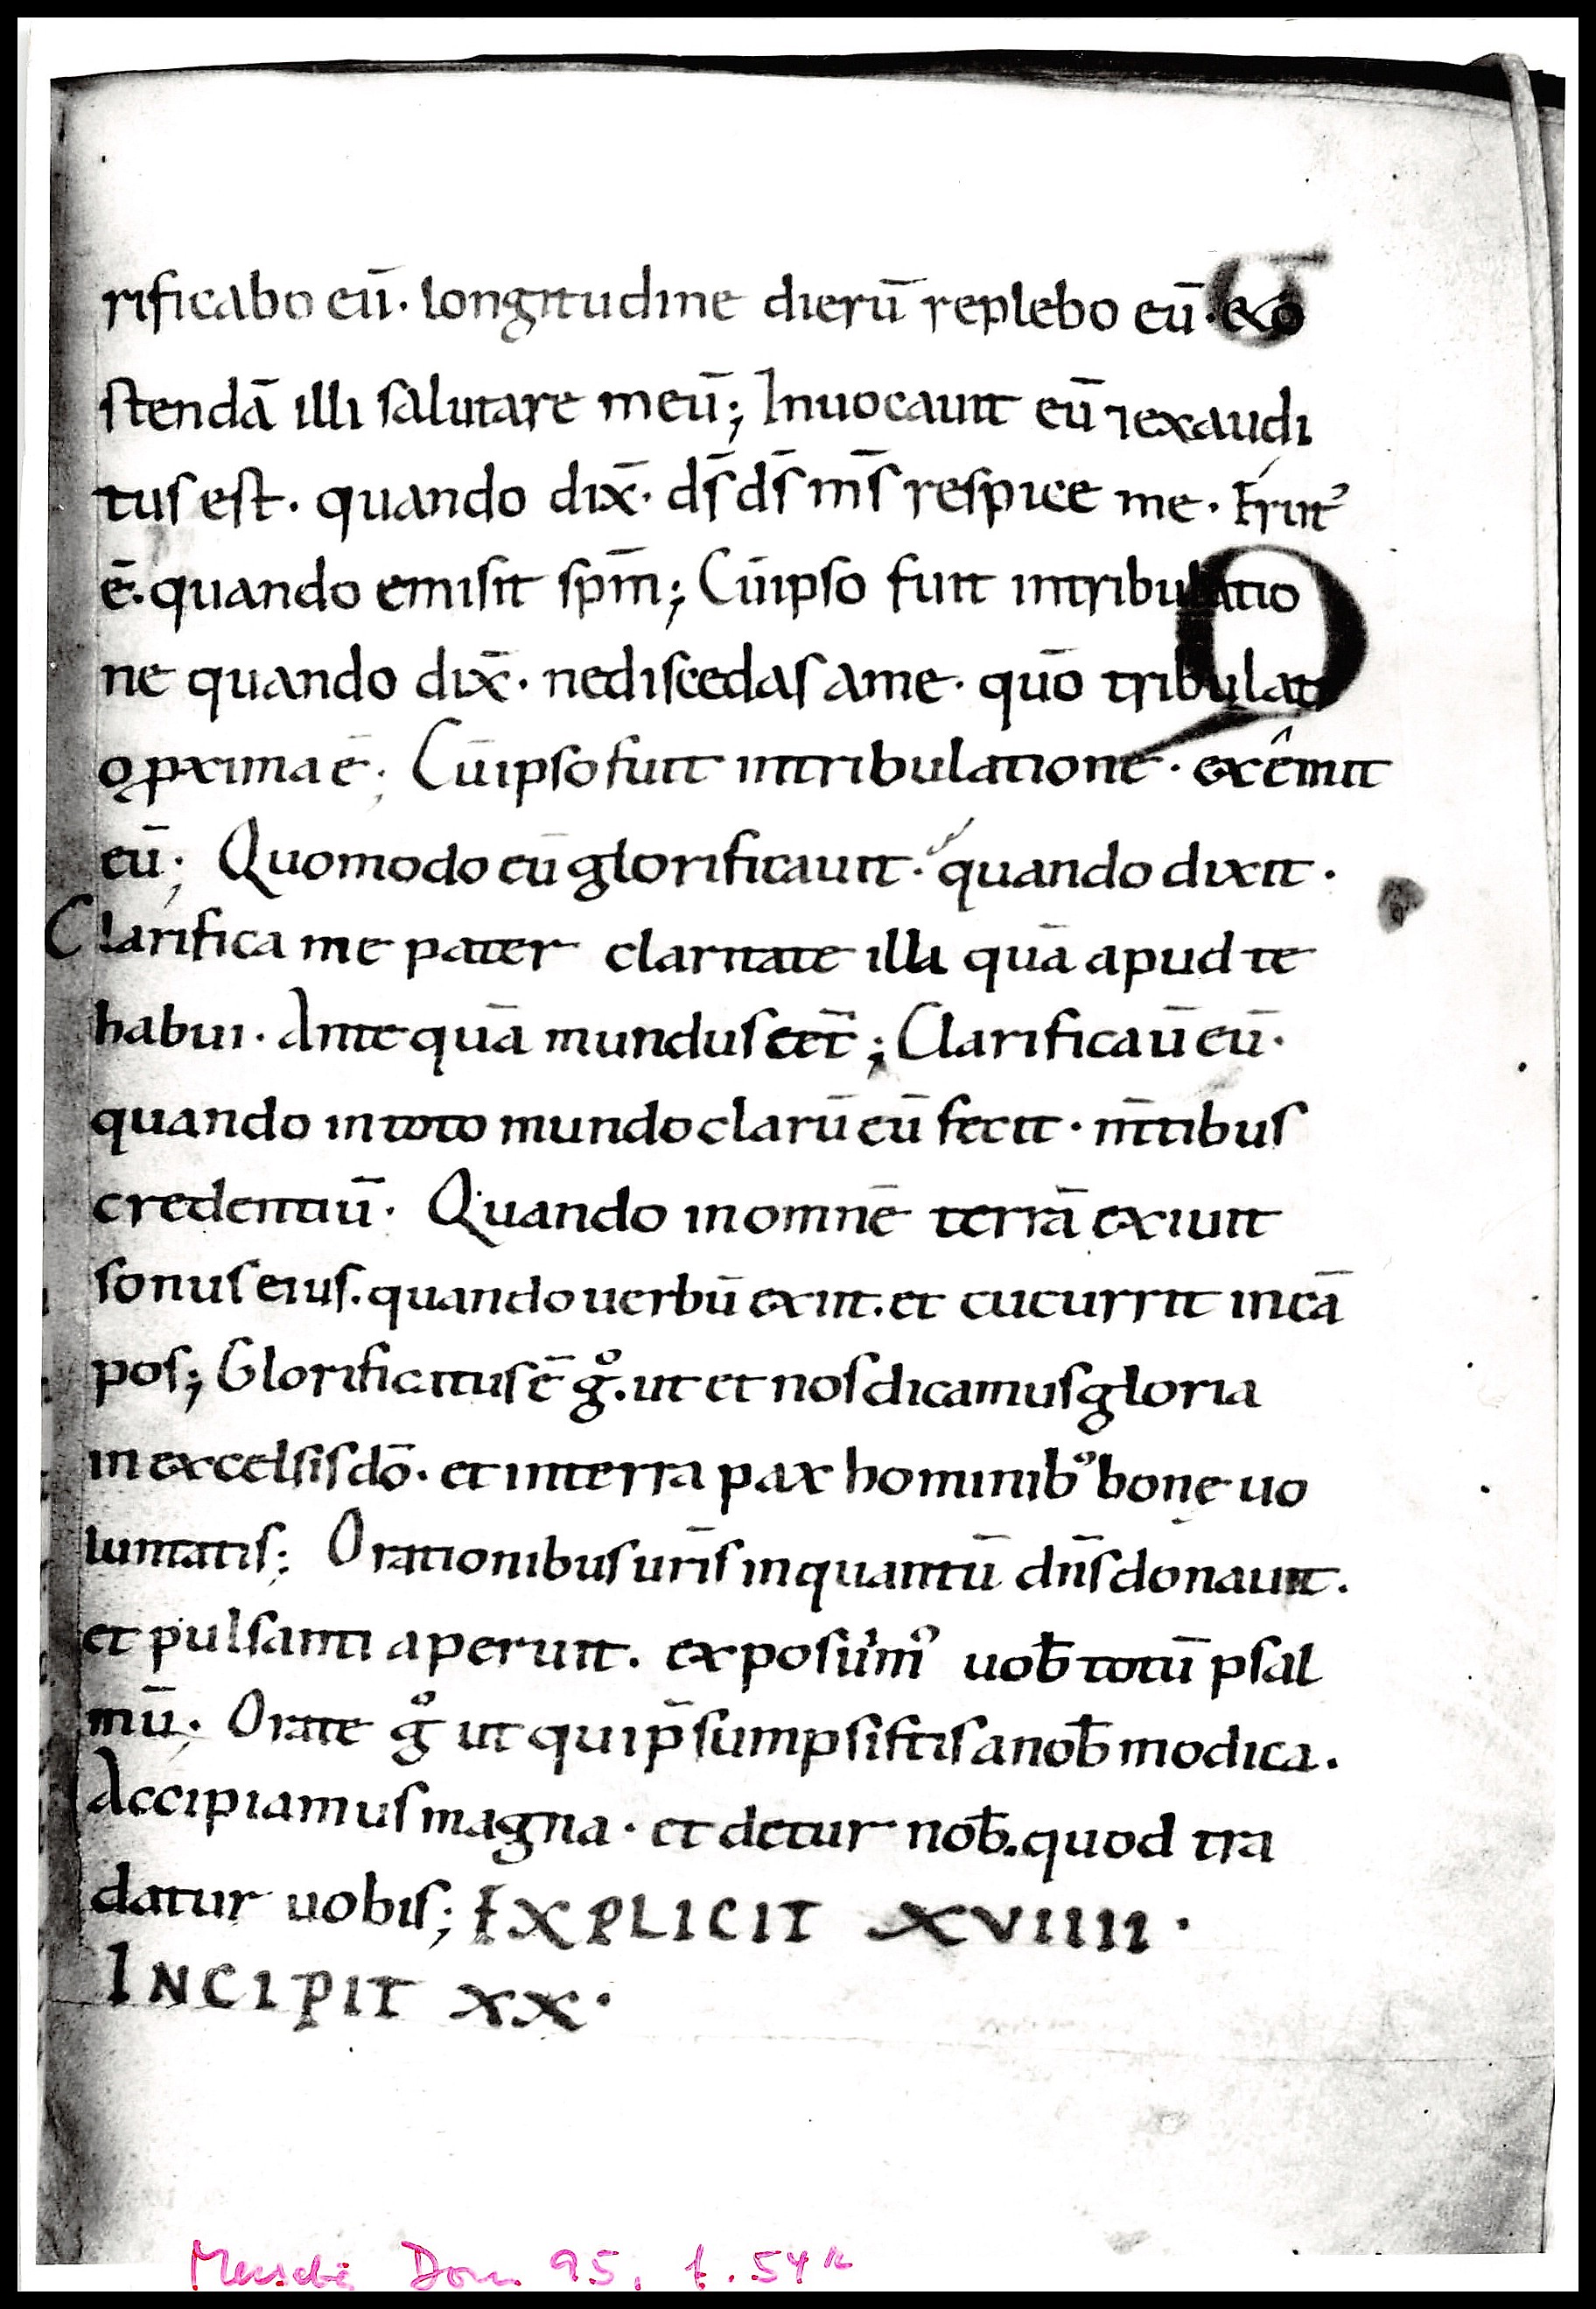 rificabo eū· longitudine dierū replebo eū· & o
stendā illi salutare meū; Inuocauit eū ⁊ exaudi
tus est· quando dix̄· d̄s d̄s m̄s respice me·
ē· quando emisit sp̄m; Cū ipso fuit in tribulatio
ne quando dix̄· ne discedas a me· quō tribulati
o ꝓxima ē; Cū ipso fuit in tribulatione· exemit
eū; Quomodo eū glorificauit· quando dixit·
Clarifica me pater claritate illa quā apud te
habui· Ante quā mundus eēt; Clarificaū eū·
quando in toto mundo clarū eū fecit· m̄tibus
credentiū· Quando in omnē terrā exiuit
sonus eius. quando uerbū exiit. et cucurrit in cā
pos; Glorificatus ē gͦ. ut et nos dicamus gloria
in excelsis dō· et in terra pax hominibꝰ bonę uo
luntatis; Orationibus ur̄is in quantū dn̄s donauit.
et pulsanti aperuit. exposuimꝰ uob̄ totū psal
mū; Orate gͦ ut qui p̄sumpsistis a nob̄ modica.
Accipiamus magna· et detur nob̄. quod tra
datur uobis; EXPLICIT XVIIII·
INCIPIT XX·
Dom 95, f. 54